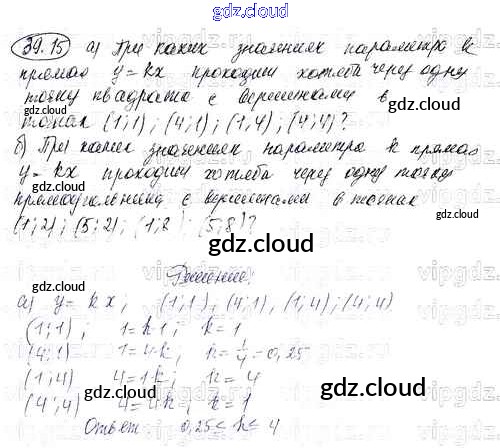 gdz.cloud
39.15 а) При каких значениях параметра k
прямая y = kx проходит хотя бы через одну
точку квадрата с вершинами в
точках (1; 1); (4; 1); (1; 4); (4; 4)?
б) При каких значениях параметра k прямая
y = kx проходит хотя бы через одну точку
прямоугольника с вершинами в точках
(1; 2); (5; 2); (1; 8); (5; 8)?
gdz.cloud
Решение:
а) y = kx; (1; 1), (4; 1), (1; 4); (4; 4)
(1; 1); 1 = k1; k = 1
(4; 1) 1 = 4k; k = 1/4 = 0,25
(1; 4) 4 = 1k; k = 4
(4; 4) 4 = 4k; k = 1
Ответ: 0,25 ≤ k ≤ 4
gdz.cloud